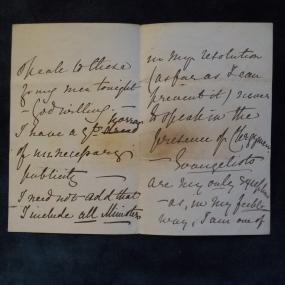 speak to these
young men tonight
— God willing —
I have a gt horror
of unnecessary
publicity —
I need not add that
I include all Ministers
in my resolution
(as far as I can
prevent it) never
to speak in the
presence of Clergymen
— Evangelists
are my only
— as, in my feeble
way, I am one of